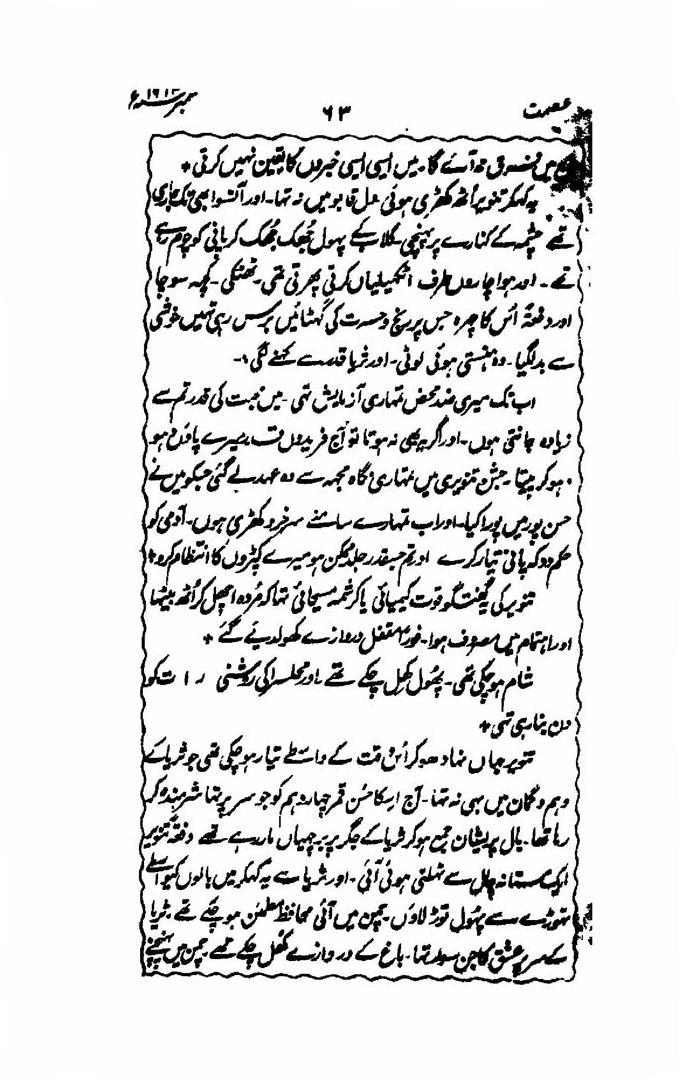 عصمت
۶۳
ستمبر ۱۹۱۳ء
میں فرق نہ آئے گا۔ میں ایسی ایسی خبروں کا یقین نہیں کرتی +
یہ کہکر تنویر اُٹھ کھڑی ہوئی دل قابو میں نہ تھا۔ اور آنسو ابھی تک جاری
تھے چشمہ کے کنارے پر پہنچی۔ گلاب کے پھول جُھک جُھک کر پانی کو چوم رہے
تھے۔ اور ہوا چاروں طرف اٹھکیلیاں کرتی پھرتی تھی۔ ٹھٹکی۔ کچھ سوچا
اور دفعۃً اُس کا چہرہ جس پر رنج و حسرت کی گھٹائیں برس رہی تہیں خوشی
سے بدلگیا۔ وہ ہنستی ہوئی لوٹی۔ اور ثریا قدر سے کہنے لگی:۔
اب تک میری ضد محض تمہاری آزمایش تھی۔ میں محبت کی قدر تم سے
زیادہ جانتی ہوں۔ اور اگر یہ بھی نہ ہوتا تو آج فریدوں قدر میرے پاؤں دھو
دھو کر پیتا۔ جشن تنویری میں تمہاری نگاہ مجہہ سے وہ عہد لے گئی جسکو میں نے
حسن پور میں پورا کیا۔ اور اب تمہارے سامنے سرخرو کھڑی ہوں۔ آدمی کو
حکم دو کہ پانی تیار کرے اور تم جسقدر جلد ممکن ہو میرے کپڑوں کا انتظام کرو +
تنویر کی یہ گفتگو قوت کیمیائی یا کرشمہ مسیحائی تہا کہ مُردہ اچھل کر اُٹھ بیٹھا
اور اہتمام میں مصروف ہوا۔ فوراً مقفل دروازے کھولدیے گئے +
شام ہو چکی تھی۔ پھُول کھِل چکے تھے اور محلسرا کی روشنی رات کو
دن بنا رہی تہی +
تنویر جہاں نہا دھو کر اُس وقت کے واسطے تیار ہو چکی تھی جو ثریا کے
وہم و گمان میں بہی نہ تہا۔ آج اسکا حُسن قمر چہاردہم کو جو سر پر تہا شرمندہ کر
رہا تھا۔ بال پریشان جمع ہو کر ثریا کے جگر پر برچھیاں مار رہے تھے دفعۃً تنویر
ایک مستانہ چال سے ٹہلتی ہوئی آئی۔ اور ثریا سے یہ کہکر میں بالوں کیواسطے
تہوڑے سے پہُول توڑ لاوں۔ چمن میں آئی محافظ مطمئن ہو چکے تھے ثریا
کے سر پر عشق کا جن سوار تہا۔ باغ کے دروازے کُھل چکے تھے۔ چمن میں پہنچنے